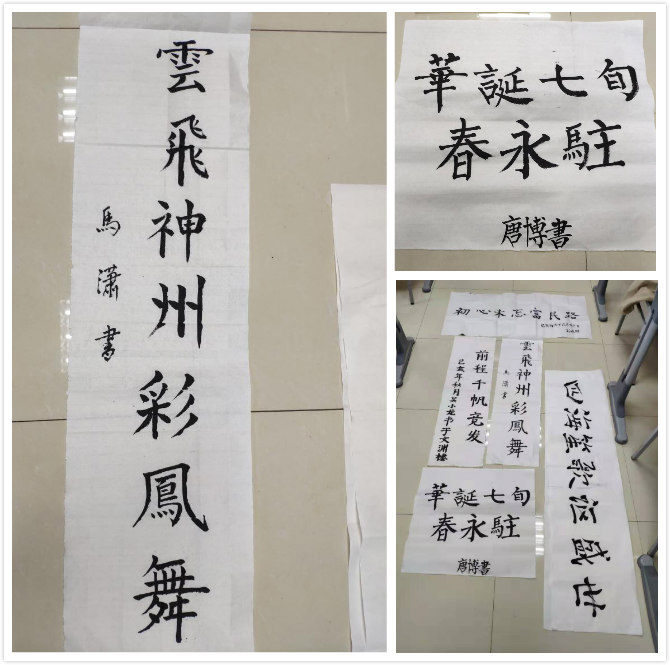 雲飛神州彩鳳舞
馬瀟書
華誕七旬
春永駐
唐博書
初心未忘富民路
雲飛神州彩鳳舞
馬瀟書
前程千帆竞发
己亥年秋月吴小龙书于文渊樓
四海笙歌盛世
華誕七旬
春永駐
唐博書